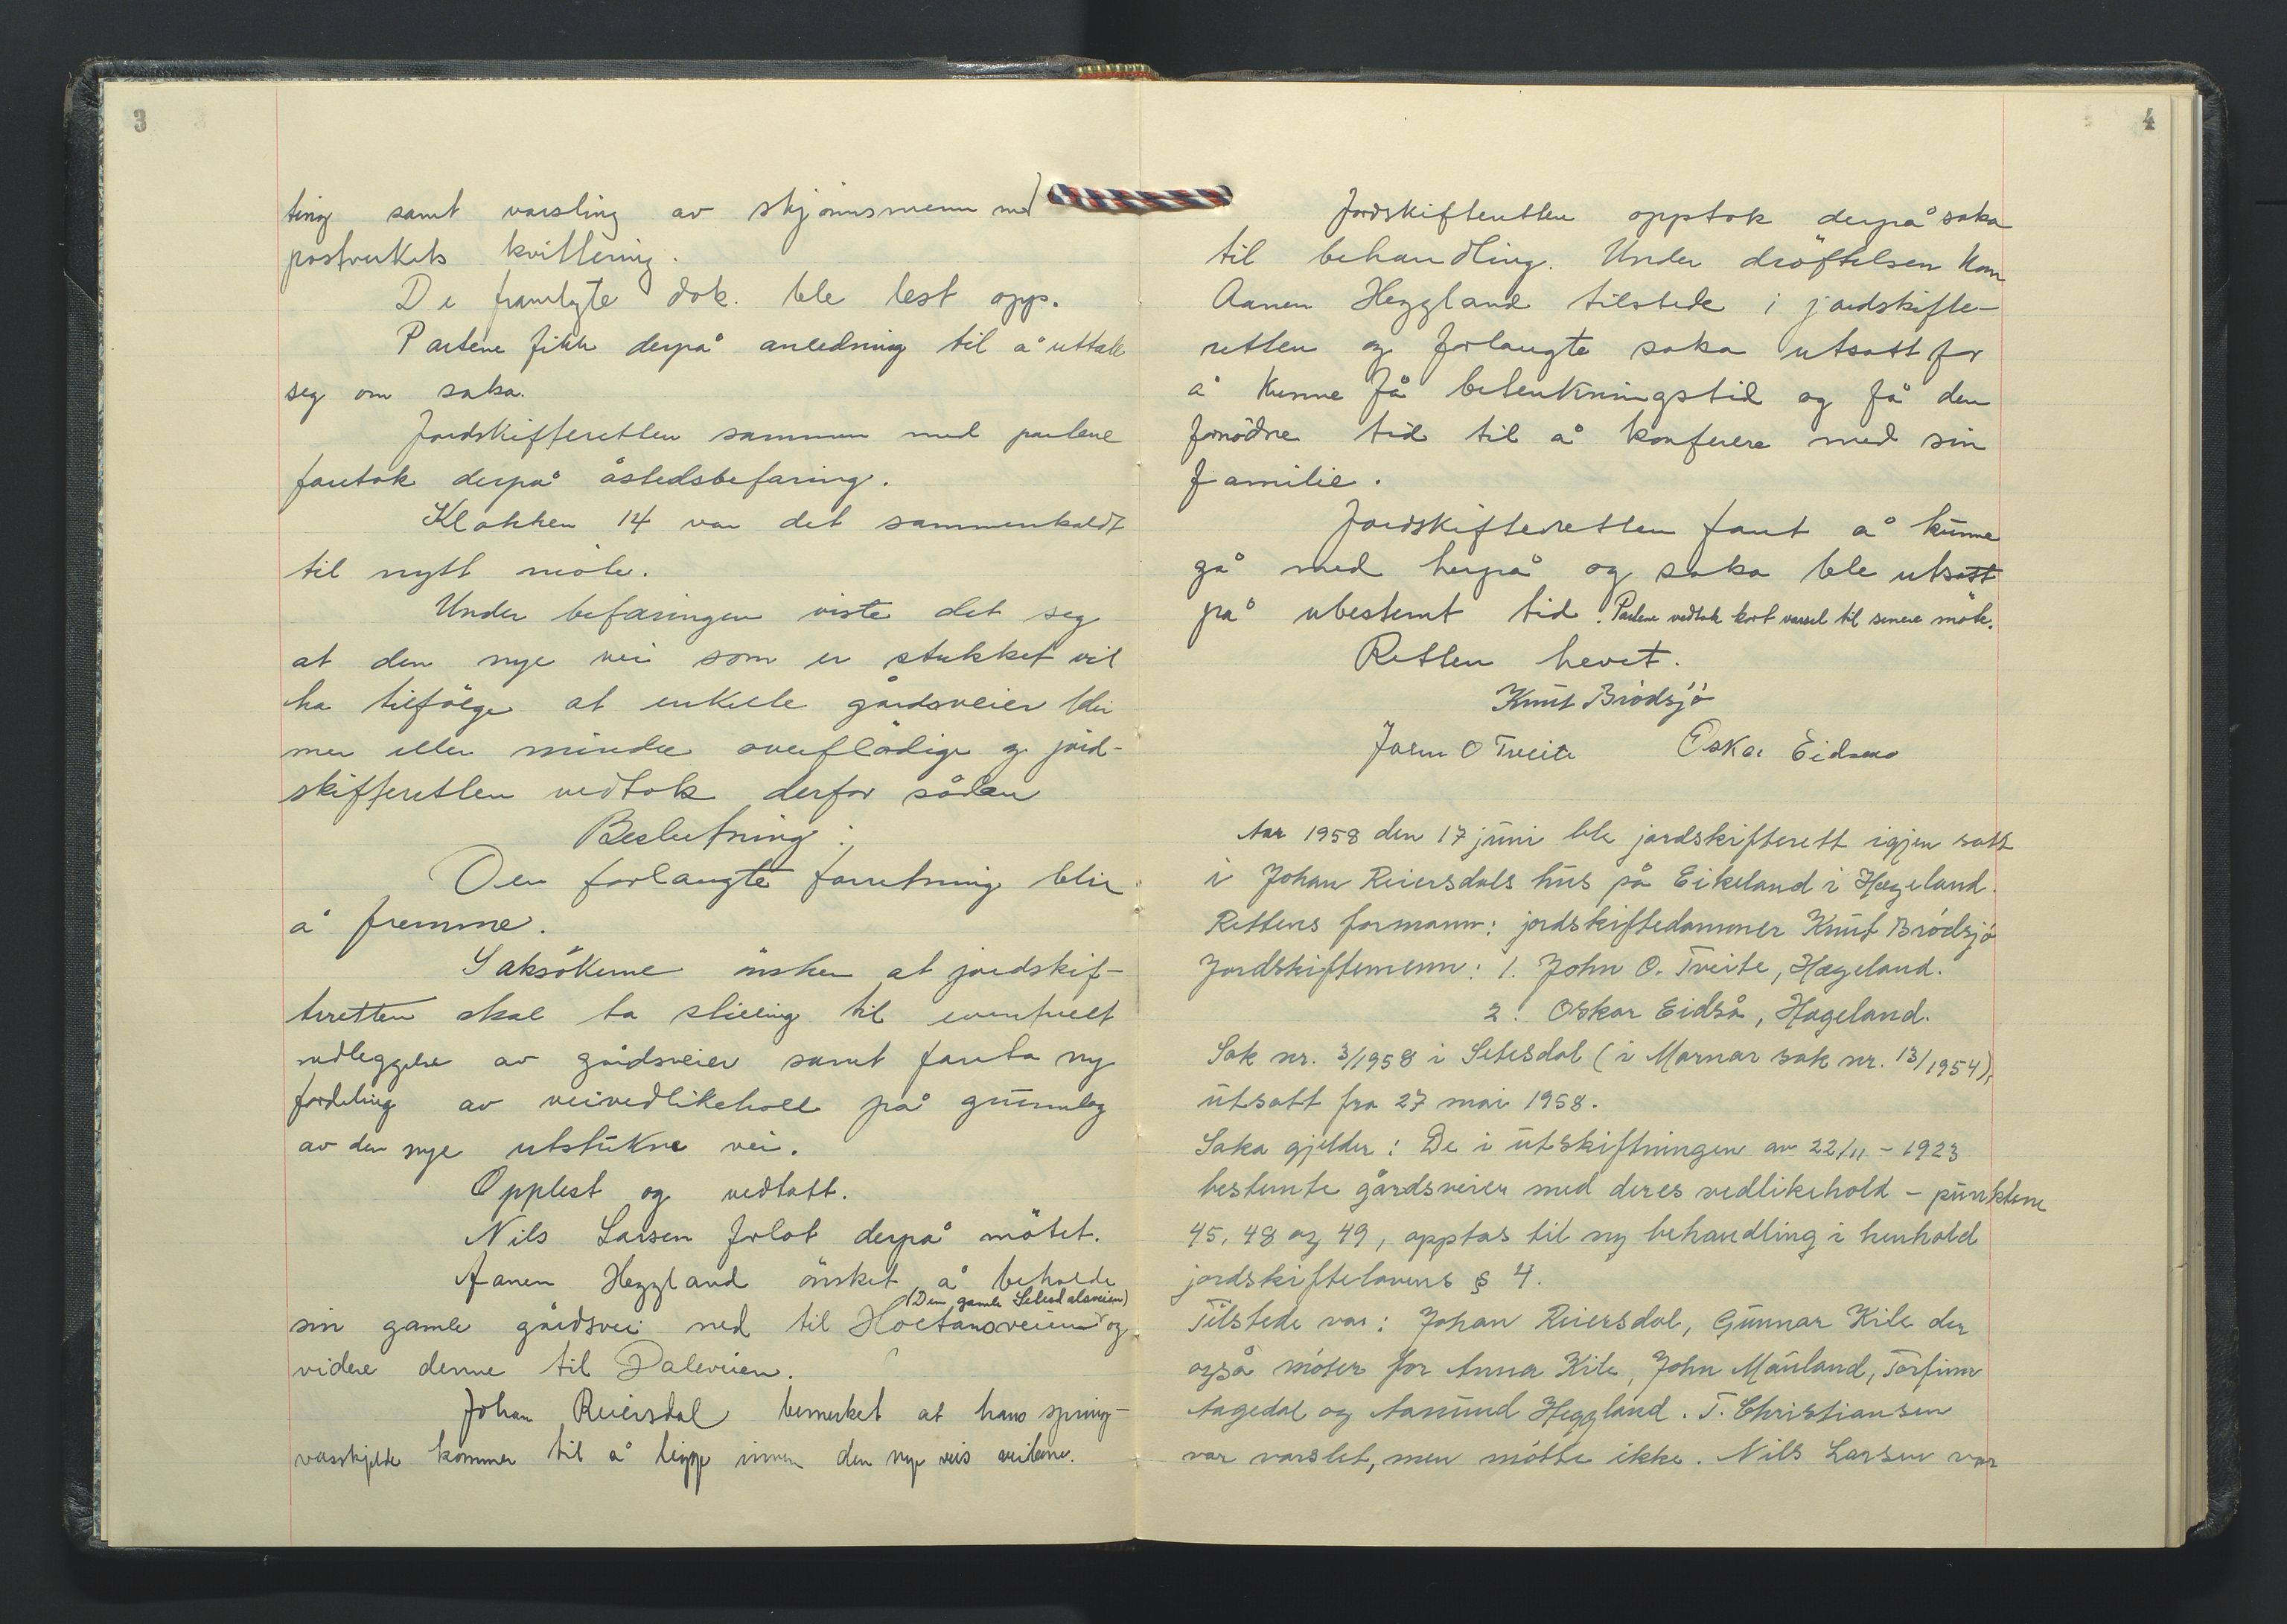 3
ting samt varsling av skjönnsmenn med
postverkets kvittering.
De framlagte dok. ble lest opp.
Partene fikk derpå anledning til å uttale
seg om saka.
Jordskifteretten sammen med partene
foretok derpå åstedsbefaring.
Klokken 14 var det sammenkaldt
til nytt möte.
Under befaringen viste det seg
at den nye vei som er stukket vil
ha tilfölge at enkelte gårdsveier blir
mer eller mindre overflödige og jord-
skifteretten vedtok derfor sådan
Beslutning:
Den forlangte forretning blir
å fremme.
Saksökerne önsker at jordskif-
teretten skal ta stilling til eventuelt
nedleggelse av gårdsveier samt foreta ny
fordeling av veivedlikehold på grunnlag
av den nye utstukne vei.
Opplest og vedtatt.
Nils Larsen forlot derpå mötet.
Aanen Heggland önsket å beholde
(Den gamle Setesdalsveien)
sin gamle gårdsvei ned til og
videre denne til Daleveien.
Johan Reiersdal bemerket at hans spring-
vasskjelde kommer til å ligge innen den nye veis
4
Jordskifteretten opptok derpå saka
til behandling. Under dröftelsen kom
Aanen Heggland tilstede i jordskifte-
retten og forlangte saka utsatt for
å kunne få betenkningstid og få den
fornödne tid til å konferere med sin
familie.
Jordskifteretten fant å kunne
gå med herpå og saka ble utsatt
på ubestemt tid. Partene vedtok kort varsel til senere möte.
Retten hevet.
Knut Brödsjö
John O Tveite Oskar Eidsaa
Aar 1958 den 17 juni ble jordskifterett igjen satt
i Johan Reiersdals hus på Eikeland i Hægeland.
Rettens formann: jordskiftedommer Knut Brödsjö
Jordskiftemenn: 1. John O. Tveite, Hægeland.
2. Oskar Eidså, Hægeland.
Sak nr. 3/1958 i Setesdal (i Marnar sak nr. 13/1954),
utsatt fra 27 mai 1958.
Saka gjelder: De i utskiftningen av 22/11 - 1923
bestemte gårdsveier med deres vedlikehold - punktene
45, 48 og 49, opptas til ny behandling i henhold
jordskiftelovens § 4.
Tilstede var: Johan Reiersdal, Gunnar Kile der
også möter for Anna Kile, John Mauland, Torfinn
Aagedal og Aasmund Heggland. T. Christiansen
var varslet, men mötte ikke. Nils Larsen var